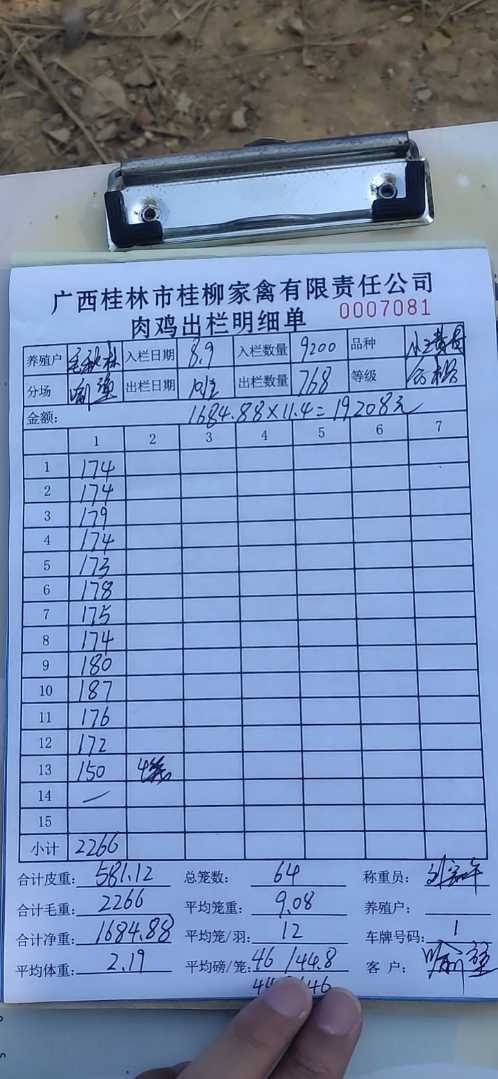 广西桂林市桂柳家禽有限责任公司
肉鸡出栏明细单 0007081
养殖户 入栏日期 8.9 入栏数量 9200 品种
分场 出栏日期 出栏数量 768 等级 合格
金额: 1684.88×11.4=19208元
1 2 3 4 5 6 7
1 174
2 174
3 179
4 174
5 173
6 178
7 175
8 174
9 180
10 187
11 176
12 172
13 150 4笼
14 —
15
小计 2266
合计皮重: 581.12 总笼数: 64 称重员:
合计毛重: 2266 平均笼重: 9.08 养殖户:
合计净重: 1684.88 平均笼/羽: 12 车牌号码: 1
平均体重: 2.19 平均磅/笼: 46/44.8 客户: